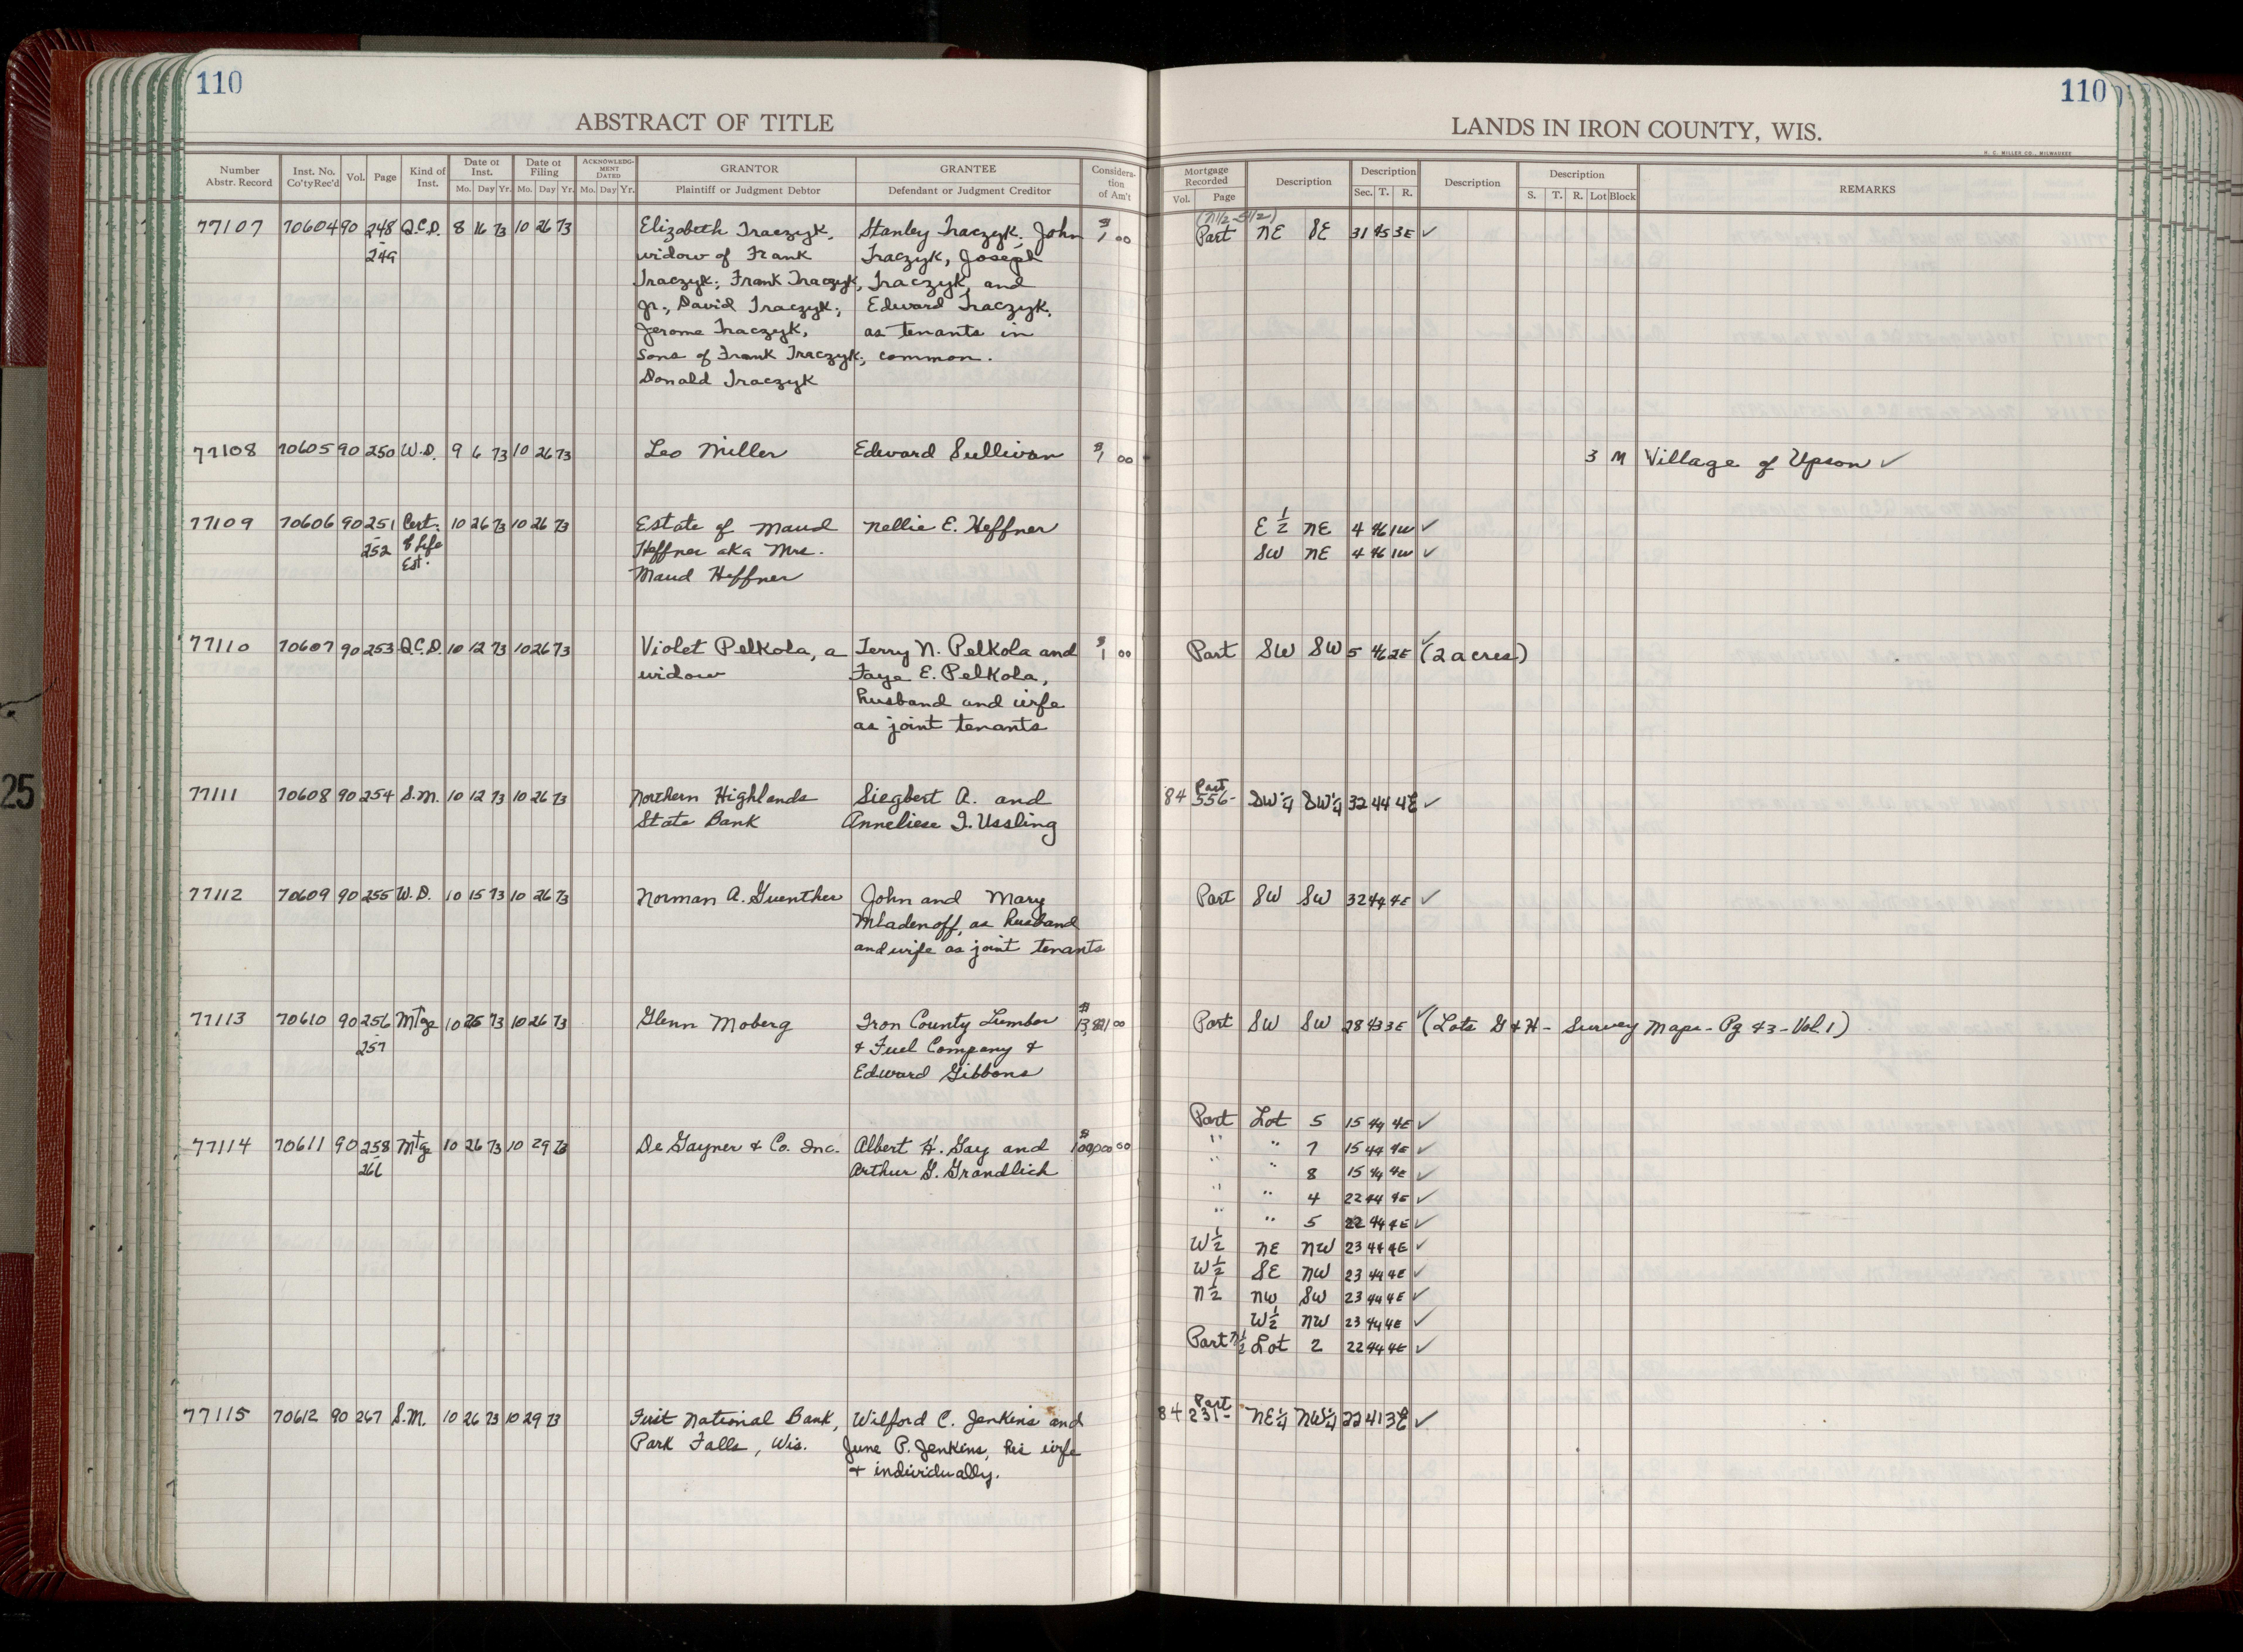 110
ABSTRACT OF TITLE
Number Abstr. Record
Inst. No. Co'ty Rec'd
Vol.
Page
Kind of Inst.
Date of Inst.
Mo. Day Yr.
Date of Filing
Mo. Day Yr.
ACKNOWLEDGMENT DATED
Mo. Day Yr.
GRANTOR
Plaintiff or Judgment Debtor
GRANTEE
Defendant or Judgment Creditor
Consideration of Am't
110
LANDS IN IRON COUNTY, WIS.
H. C. MILLER CO., MILWAUKEE
Mortgage Recorded
Vol. Page
Description
Description
Sec. T. R.
Description
Description
S. T. R. Lot Block
REMARKS
77107 70604 90 248 Q.C.D. 8 16 73 10 26 73 Elizabeth Traczyk, Stanley Traczyk, John $1 00 Part NE SE 31 45 3E ✓
(N1/2-S1/2)
- 249 widow of Frank Traczyk, Joseph
Traczyk; Frank Traczyk, Traczyk, and
Jr., David Traczyk, Edward Traczyk,
Jerome Traczyk, as tenants in
sons of Frank Traczyk; common.
Donald Traczyk
77108 70605 90 250 W.D. 9 6 73 10 26 73 Leo Miller Edward Sullivan $1 00 3 M Village of Upson ✓
77109 70606 90 251 Cert. 10 26 73 10 26 73 Estate of Maud Nellie E. Heffner E 1/2 NE 4 46 1W ✓
- 252 of Life Heffner aka Mrs. SW NE 4 46 1W ✓
Est. Maud Heffner
77110 70607 90 253 Q.C.D. 10 12 73 10 26 73 Violet Pelkola, a Terry N. Pelkola and $1 00 Part SW SW 5 46 2E ✓ (2 acres)
widow Faye E. Pelkola,
husband and wife
as joint tenants
77111 70608 90 254 S.M. 10 12 73 10 26 73 Northern Highlands Siegbert A. and 84 556- Part SW 1/4 SW 1/4 32 44 4E ✓
State Bank Anneliese I. Ussling
77112 70609 90 255 W.D. 10 15 73 10 26 73 Norman A. Guenther John and Mary Part SW SW 32 44 4E ✓
Mladenoff, as husband
and wife as joint tenants
77113 70610 90 256 Mtge 10 25 73 10 26 73 Glenn Moberg Iron County Lumber $ 00 Part SW SW 28 43 3E ✓ (Lots G & H - Survey Maps - Pg 43 - Vol. 1)
257 & Fuel Company &
Edward Gibbons
Part Lot 5 15 44 4E ✓
77114 70611 90 258 Mtge 10 26 73 10 29 73 De Gayner & Co. Inc. Albert H. Gay and $ 00 " " 7 15 44 4E ✓
- 266 Arthur G. Grandlich " " 8 15 44 4E ✓
" " 4 22 44 4E ✓
" " 5 22 44 4E ✓
W 1/2 NE NW 23 44 4E ✓
W 1/2 SE NW 23 44 4E ✓
N 1/2 NW SW 23 44 4E ✓
W 1/2 NW 23 44 4E ✓
Part N 1/2 Lot 2 22 44 4E ✓
77115 70612 90 267 S.M. 10 26 73 10 29 73 First National Bank, Wilford C. Jenkins and 84 231- Part NE 1/4 NW 1/4 22 41 3E ✓
Park Falls, Wis. June P. Jenkins, his wife
& individually.
25